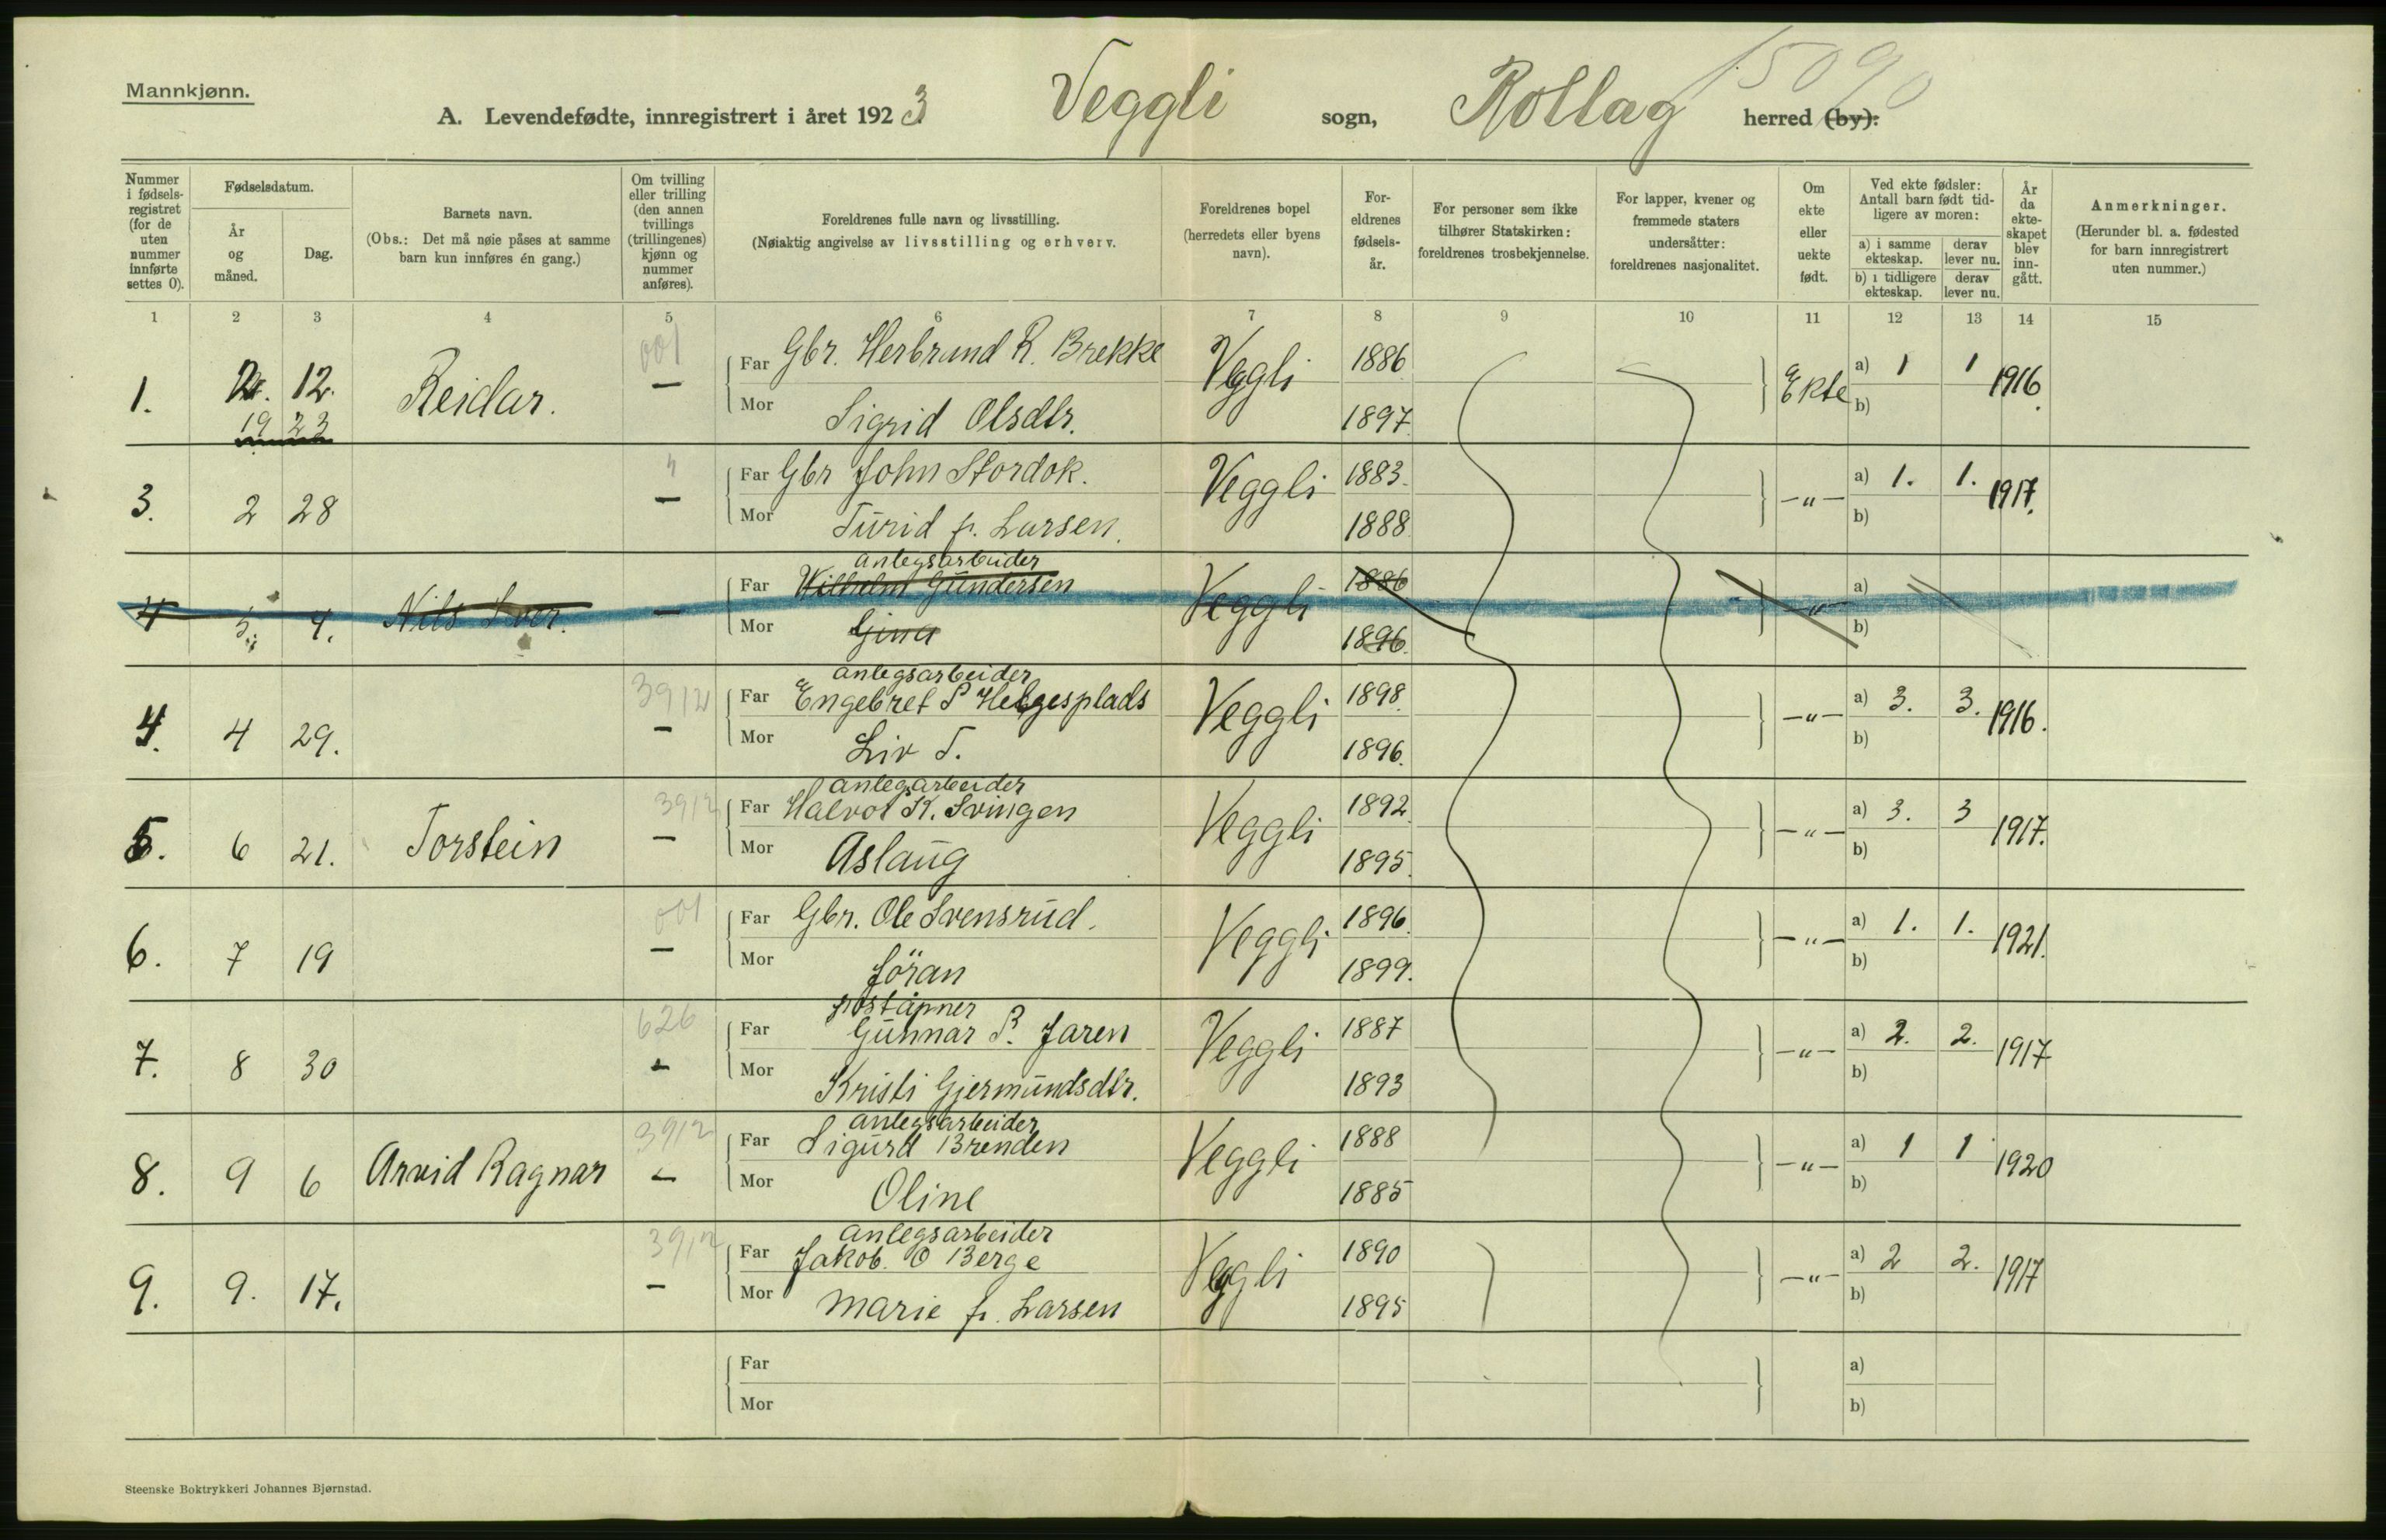 Mannkjønn.
A. Levendefødte, innregistrert i året 1923 Veggli sogn, Rollag herred (by): 15090
Nummer i fødsels-registret (for de uten nummer innførte settes 0).
Fødselsdatum.
År og måned.
Dag.
Barnets navn.
(Obs.: Det må nøie påses at samme barn kun innføres én gang.)
Om tvilling eller trilling (den annen tvillings (trillingenes) kjønn og nummer anføres).
Foreldrenes fulle navn og livsstilling.
(Nøiaktig angivelse av livsstilling og erhverv.
Foreldrenes bopel (herredets eller byens navn).
For-eldrenes fødsels-år.
For personer som ikke tilhører Statskirken: foreldrenes trosbekjennelse.
For lapper, kvener og fremmede staters undersåtter: foreldrenes nasjonalitet.
Om ekte eller uekte født.
Ved ekte fødsler: Antall barn født tid-ligere av moren:
a) i samme ekteskap.
derav lever nu.
b) i tidligere ekteskap.
derav lever nu.
År da ekte-skapet blev inn-gått.
Anmerkninger.
(Herunder bl. a. fødested for barn innregistrert uten nummer.)
1 2 3 4 5 6 7 8 9 10 11 12 13 14 15
001
1. 2. 12. Reidar. — Far Gbr. Herbrand R. Brekke Veggli 1886 Ekte a) 1 1 1916.
19 23
Mor Sigrid Olsdtr. 1897 b)
"
3. 2 28 — Far Gbr John Stordok. Veggli 1883. —"— a) 1. 1. 1917.
Mor Turid f. Larsen. 1888 b)
anlegsarbeider
4 5. 4. Nils Iver. — Far Wilhelm Gundersen Veggli 1886 " a)
Mor Gina 1896. b)
3912 anlegsarbeider
4. 4 29. — Far Engebret S Helgesplads Veggli 1898. —"— a) 3. 3. 1916.
Mor Liv T. 1896. b)
3912 anlegsarbeider
5. 6 21. Torstein — Far Halvor K. Svingen Veggli 1892. —"— a) 3. 3 1917.
Mor Aslaug 1895. b)
001
6. 7 19 — Far Gbr. Ole Svensrud. Veggli 1896. —"— a) 1. 1. 1921.
Mor Jöran 1899. b)
626 poståpner
7. 8 30 — Far Gunnar P. Jaren Veggli 1887 —"— a) 2. 2. 1917
Mor Kristi Gjermundsdtr. 1893 b)
3912 anlegsarbeider
8. 9 6 Arvid Ragnar — Far Sigurd Brenden Veggli 1888 —"— a) 1 1 1920
Mor Oline 1885 b)
3912 anlegsarbeider
9. 9. 17. — Far Jakob. O Berge Veggli 1890 —"— a) 2 2. 1917
Mor Marie f. Larsen 1895 b)
Far a)
Mor b)
Steenske Boktrykkeri Johannes Bjørnstad.